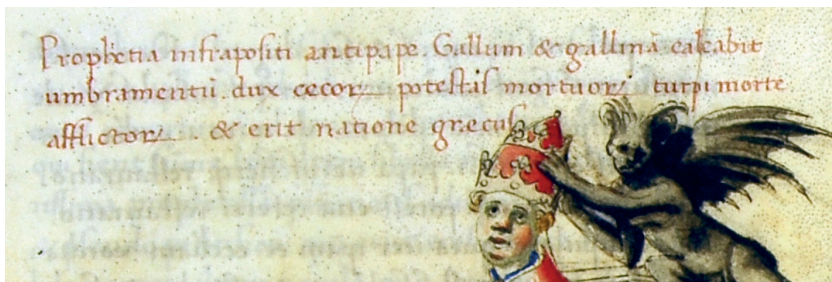 Prophetia infrapositi antipape. Gallum & gallinā calcabit
umbramentū. dux cecoꝝ potestas mortuoꝝ turpi morte
afflictoꝝ & erit natione grecus